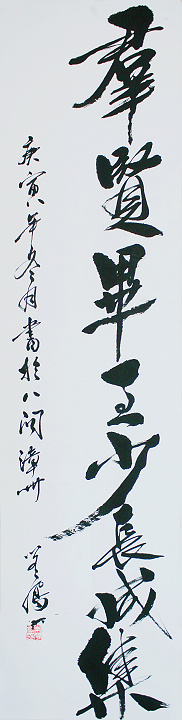 羣賢畢至少長咸集
庚寅年冬月書於八闽漳州